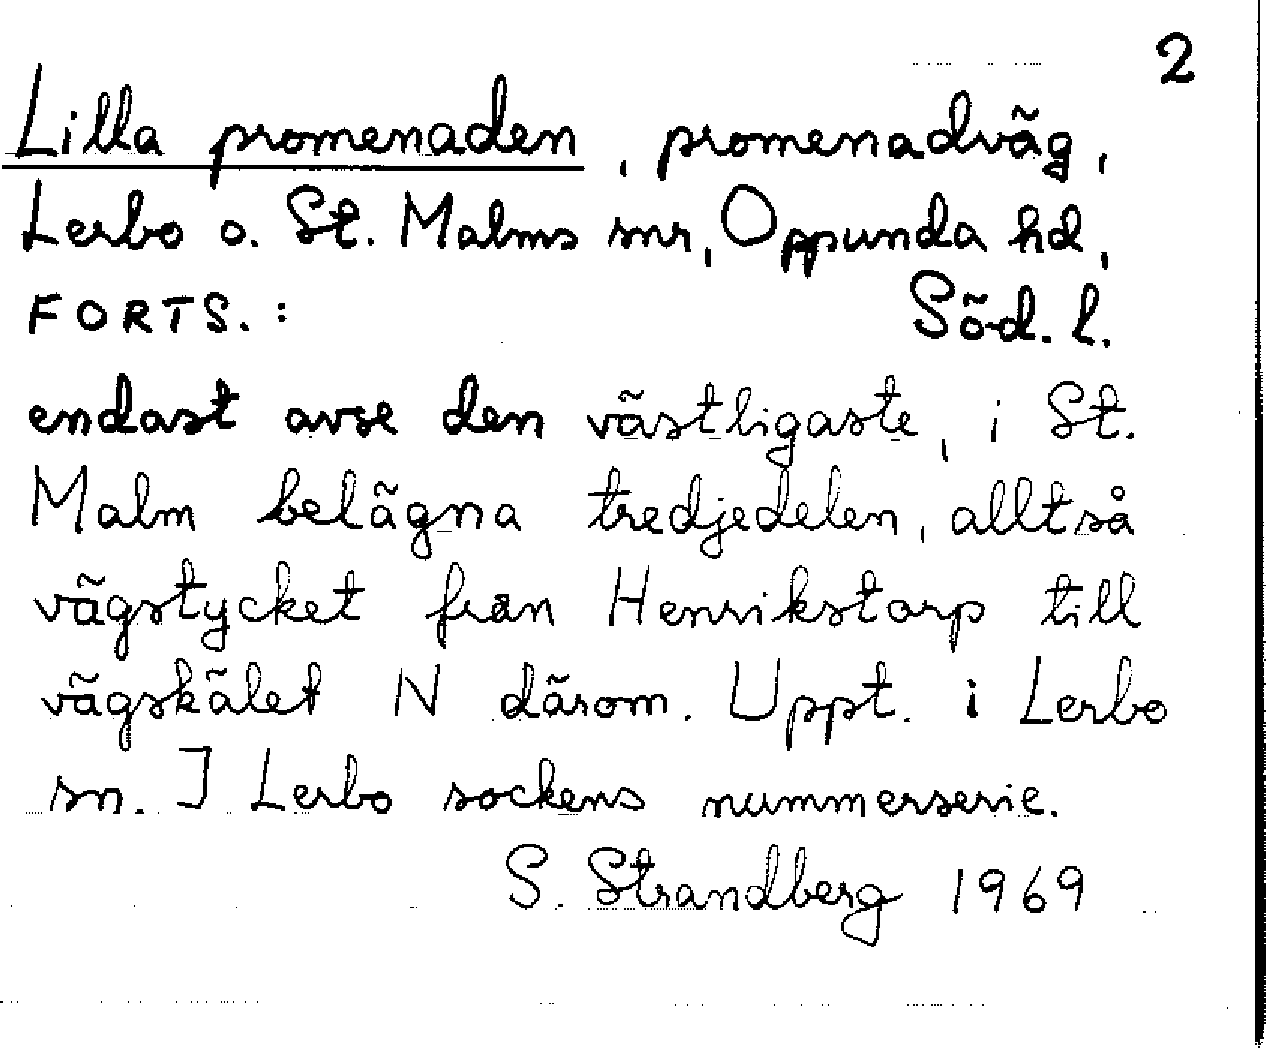 2
Lilla promenaden, promenadväg,
Lerbo o. St. Malms snr, Oppunda hd,
FORTS.: Söd. l.
endast avse den västligaste, i St.
Malm belägna tredjedelen, alltså
vägstycket från Henrikstorp till
vägskälet N därom. Uppt. i Lerbo
sn. I Lerbo sockens nummerserie.
S. Strandberg 1969